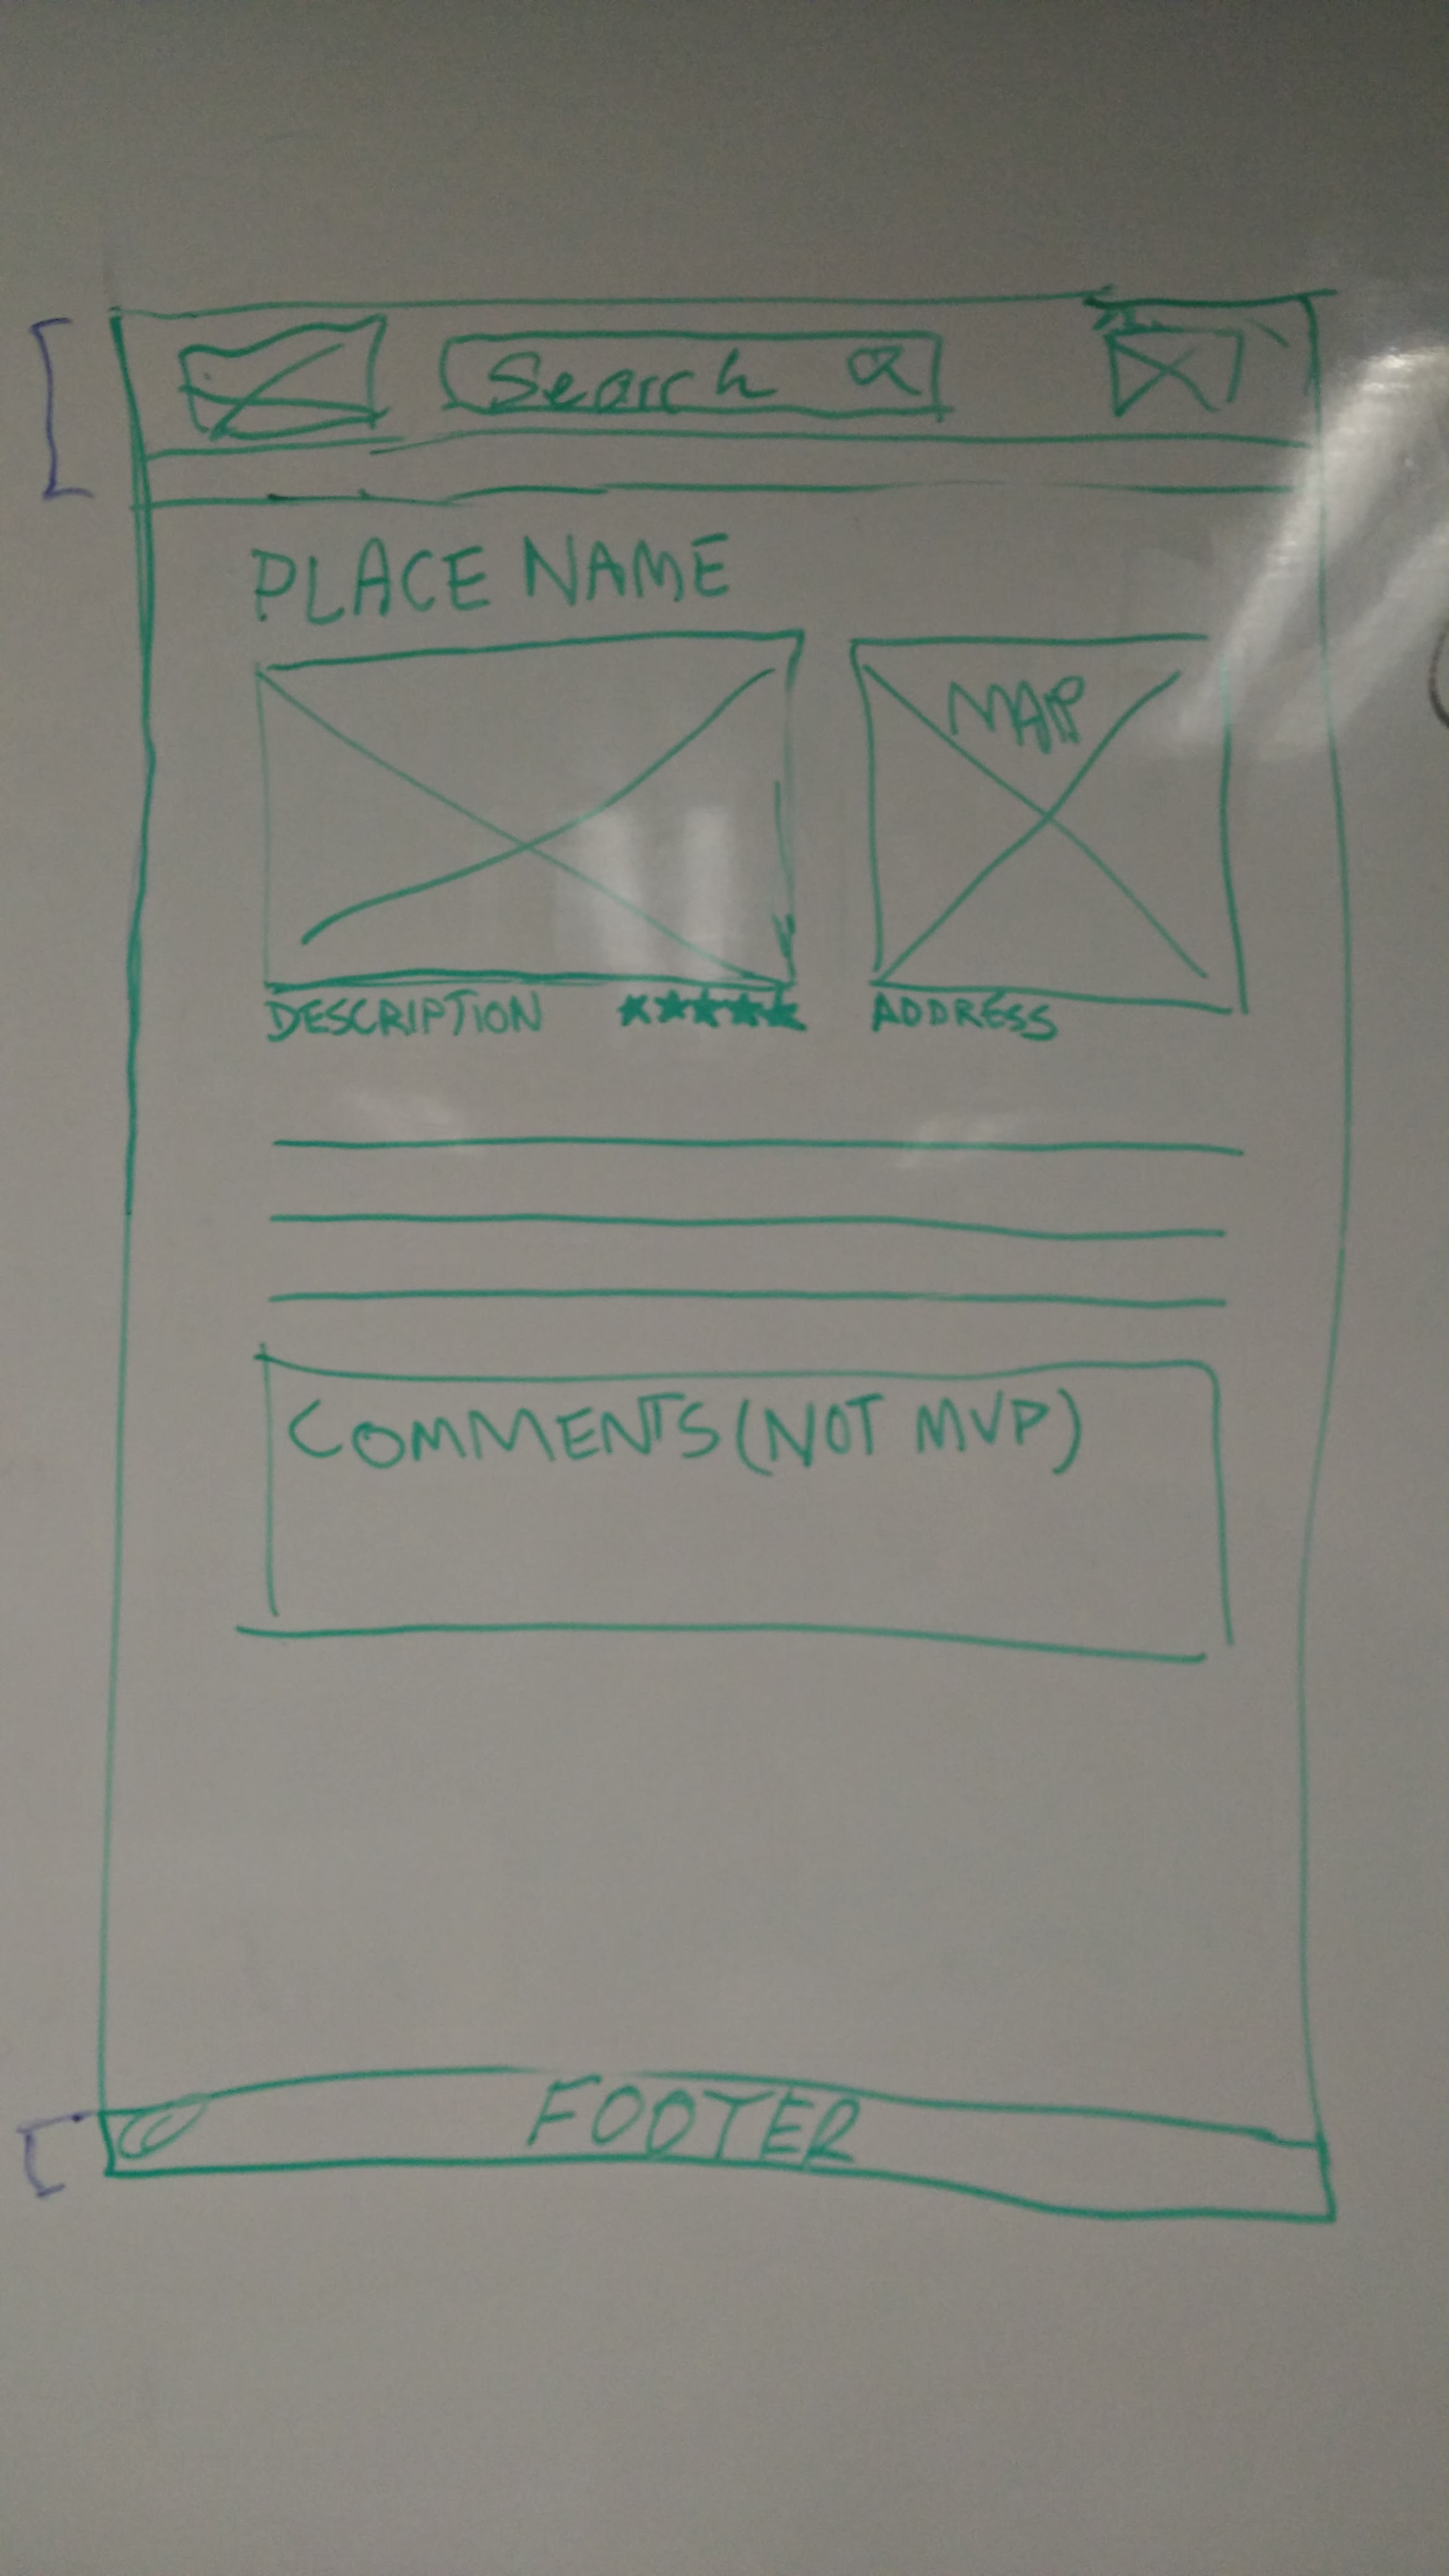 Search
PLACE NAME
MAP
DESCRIPTION ★★★★★ ADDRESS
COMMENTS (NOT MVP)
FOOTER